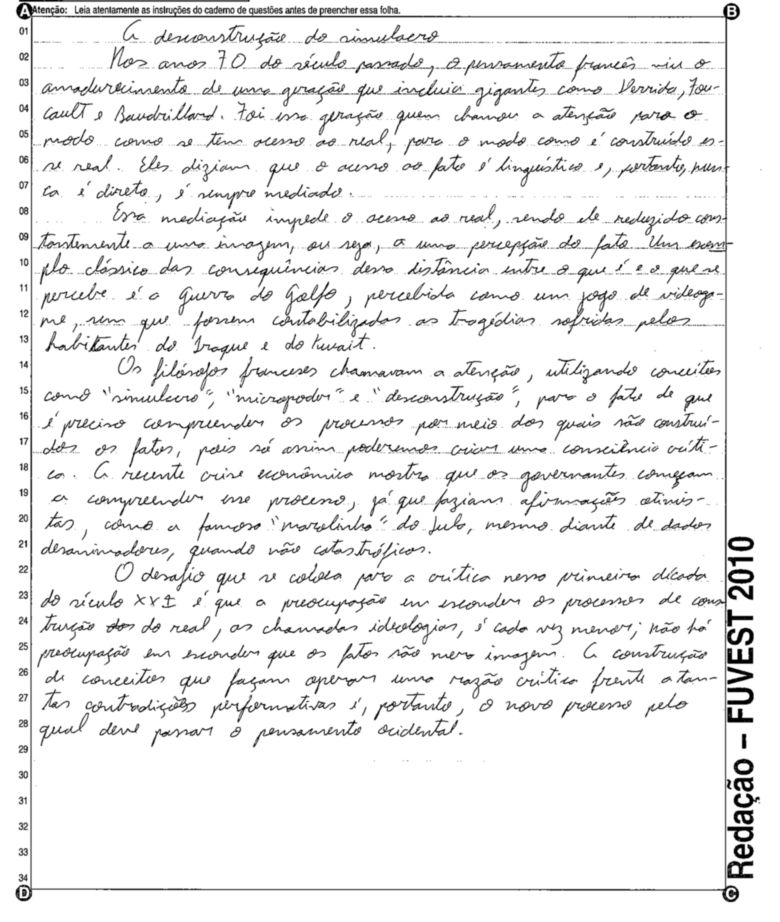 A Atenção: Leia atentamente as instruções do caderno de questões antes de preencher essa folha. B
01 A desconstrução do simulacro
02 Nos anos 70 do século passado, o pensamento francês viu o
03 amadurecimento de uma geração que incluía gigantes como Derrida, Fou-
04 cault e Baudrillard. Foi essa geração quem chamou a atenção para o
05 modo como se tem acesso ao real, para o modo como é construído es-
06 se real. Eles diziam que o acesso ao fato é linguístico e, portanto, nun-
07 ca é direto, é sempre mediado.
08 Essa mediação impede o acesso ao real, sendo ele reduzido cons-
09 tantemente a uma imagem, ou seja, a uma percepção do fato. Um exem-
10 plo clássico das consequências dessa distância entre o que é e o que se
11 percebe é a Guerra do Golfo, percebida como um jogo de videoga-
12 me, sem que fossem contabilizadas as tragédias sofridas pelos
13 habitantes do Iraque e do Kuwait.
14 Os filósofos franceses chamavam a atenção, utilizando conceitos
15 como "simulacro", "micropoder" e "desconstrução", para o fato de que
16 é preciso compreender os processos por meio dos quais são construí-
17 dos os fatos, pois só assim poderemos criar uma consciência críti-
18 ca. A recente crise econômica mostra que os governantes começam
19 a compreender esse processo, já que faziam afirmações otimis-
20 tas, como a famosa "marolinha" do Lula, mesmo diante de dados
21 desanimadores, quando não catastróficos.
22 O desafio que se coloca para a crítica nessa primeira década
23 do século XXI é que a preocupação em esconder os processos de cons-
24 trução dos do real, as chamadas ideologias, é cada vez menor; não há
25 preocupação em esconder que os fatos são mera imagem. A construção
26 de conceitos que façam operar uma razão crítica frente a tan-
27 tas contradições performativas é, portanto, o novo processo pelo
28 qual deve passar o pensamento ocidental.
29
30
31
32
33
34
D C
Redação – FUVEST 2010